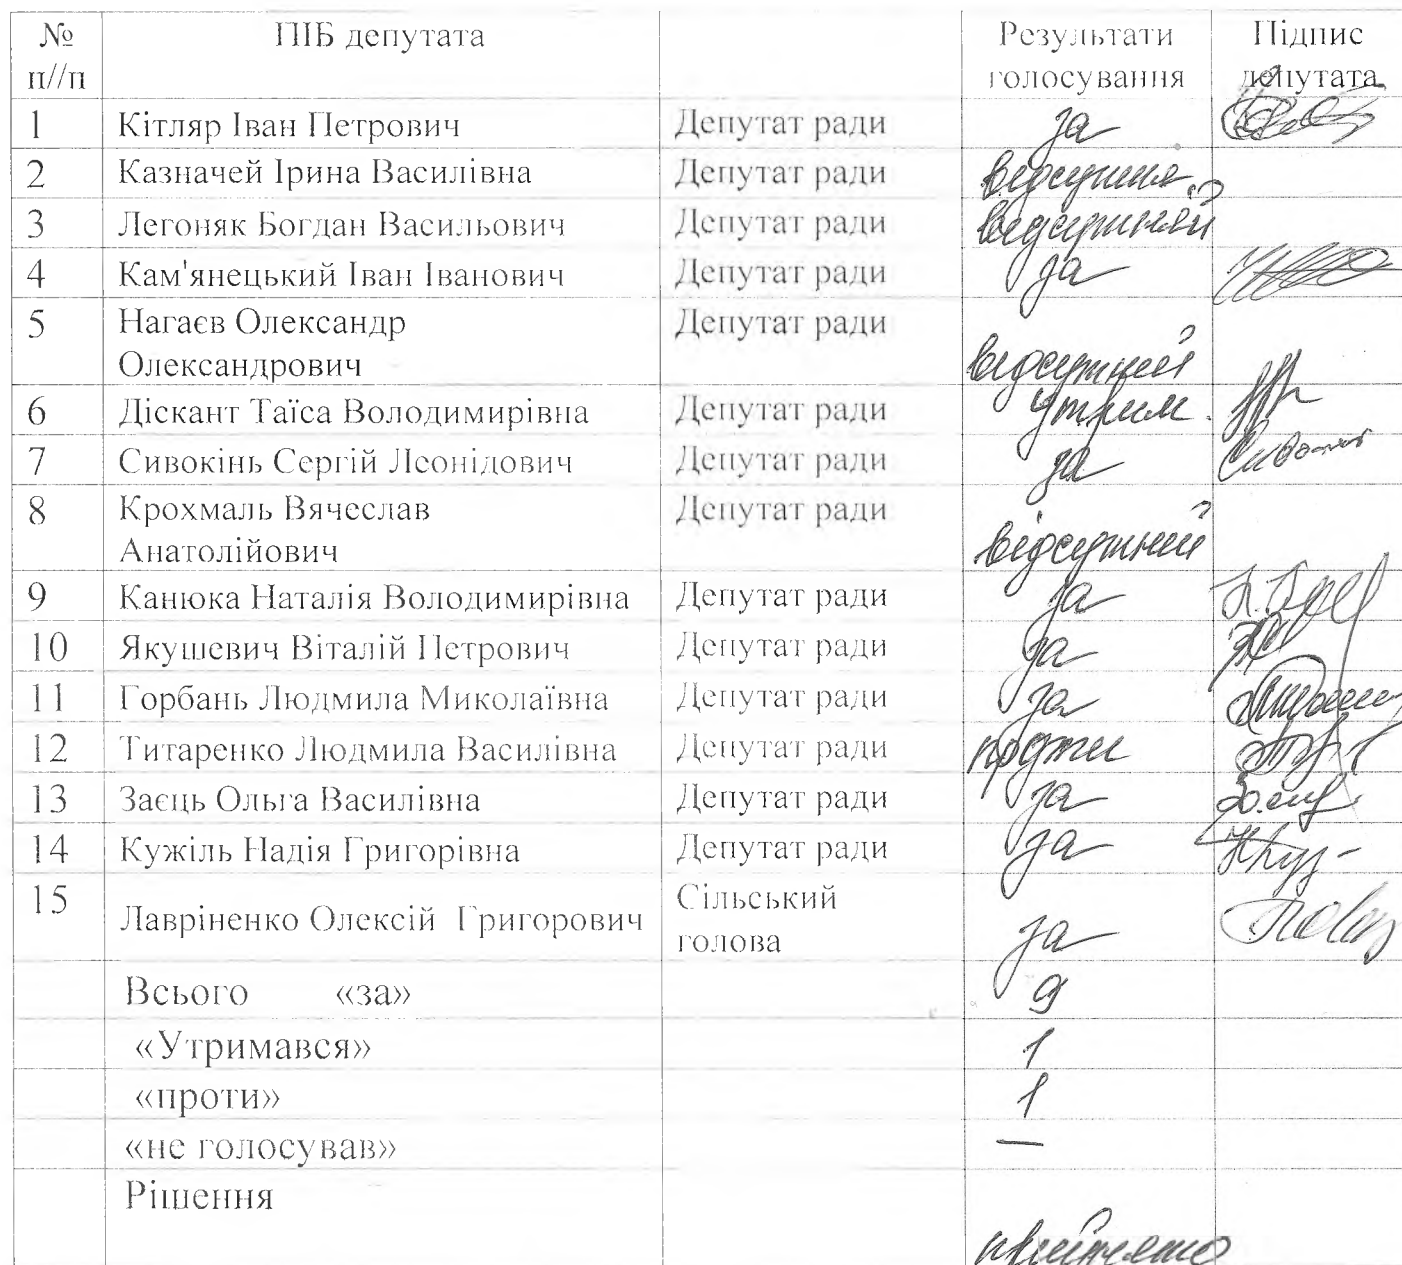 № ПІБ депутата Результати Підпис
п//п голосування депутата
1 Кітляр Іван Петрович Депутат ради за
2 Казначей Ірина Василівна Депутат ради відсутня
3 Легоняк Богдан Васильович Депутат ради відсутній
4 Кам'янецький Іван Іванович Депутат ради за
5 Нагаєв Олександр Депутат ради
Олександрович відсутній
6 Діскант Таїса Володимирівна Депутат ради утрим.
7 Сивокінь Сергій Леонідович Депутат ради за
8 Крохмаль Вячеслав Депутат ради
Анатолійович відсутній
9 Канюка Наталія Володимирівна Депутат ради за
10 Якушевич Віталій Петрович Депутат ради за
11 Горбань Людмила Миколаївна Депутат ради за
12 Титаренко Людмила Василівна Депутат ради проти
13 Заєць Ольга Василівна Депутат ради за
14 Кужіль Надія Григорівна Депутат ради за
15 Лавріненко Олексій Григорович Сільський
голова за
Всього «за» 9
«Утримався» 1
«проти» 1
«не голосував» —
Рішення
прийнято